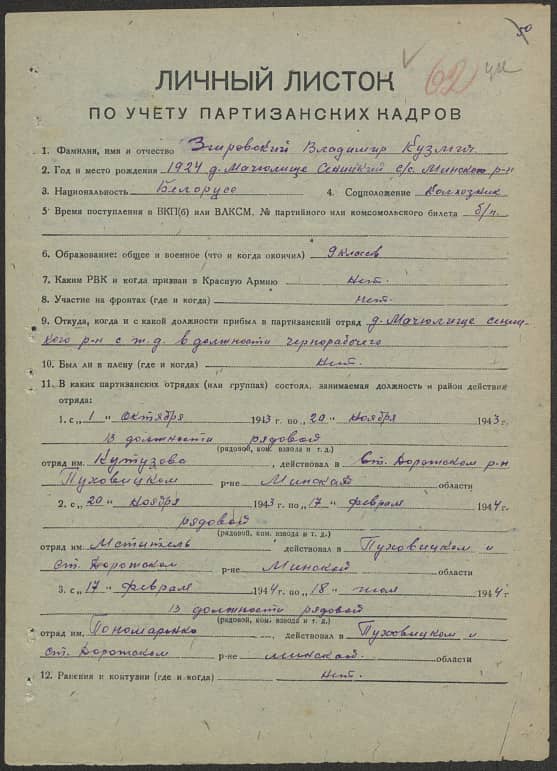 50
62
ЛИЧНЫЙ ЛИСТОК
ПО УЧЕТУ ПАРТИЗАНСКИХ КАДРОВ
1. Фамилия, имя и отчество Згировский Владимир Кузмич.
2. Год и место рождения 1924 д. Мачюлище Сеницкий с/с. Минского р-н
3. Национальность Белорусс 4. Соцположение Колхозник
5. Время поступления в ВКП(б) или ВЛКСМ, № партийного или комсомольского билета б/п.
6. Образование: общее и военное (что и когда окончил) 9 классов
7. Каким РВК и когда призван в Красную Армию Нет.
8. Участие на фронтах (где и когда) нет.
9. Откуда, когда и с какой должности прибыл в партизанский отряд д. Мачюлище сениц-
кого р-н с ж.д. в должности чернорабочего
10. Был ли в плену (где и когда) Нет.
11. В каких партизанских отрядах (или группах) состоял, занимаемая должность и район действия
отряда:
1. с „1" октября 1943 г. по „20" Ноября 1943 г.
в должности рядовой
(рядовой, ком. взвода и т. д.)
отряд им. Кутузова, действовал в Ст. Дорожском р-н
Пуховицком р-не Минская области
2. с „20" ноября 1943 г. по „17" февраля 1944 г.
рядовой
(рядовой, ком. взвода и т. д.)
отряд им. Мститель действовал в Пуховицком и
Ст. Дорожском р-не Минской области
3. с „17" февраля 1944 г. по „18" июля 1944 г
в должности рядовой
(рядовой, ком. взвода и т. д.)
отряд им. Пономаренко, действовал в Пуховицком и
Ст. Дорожском р-не минской. области
12. Ранения и контузии (где и когда) Нет.